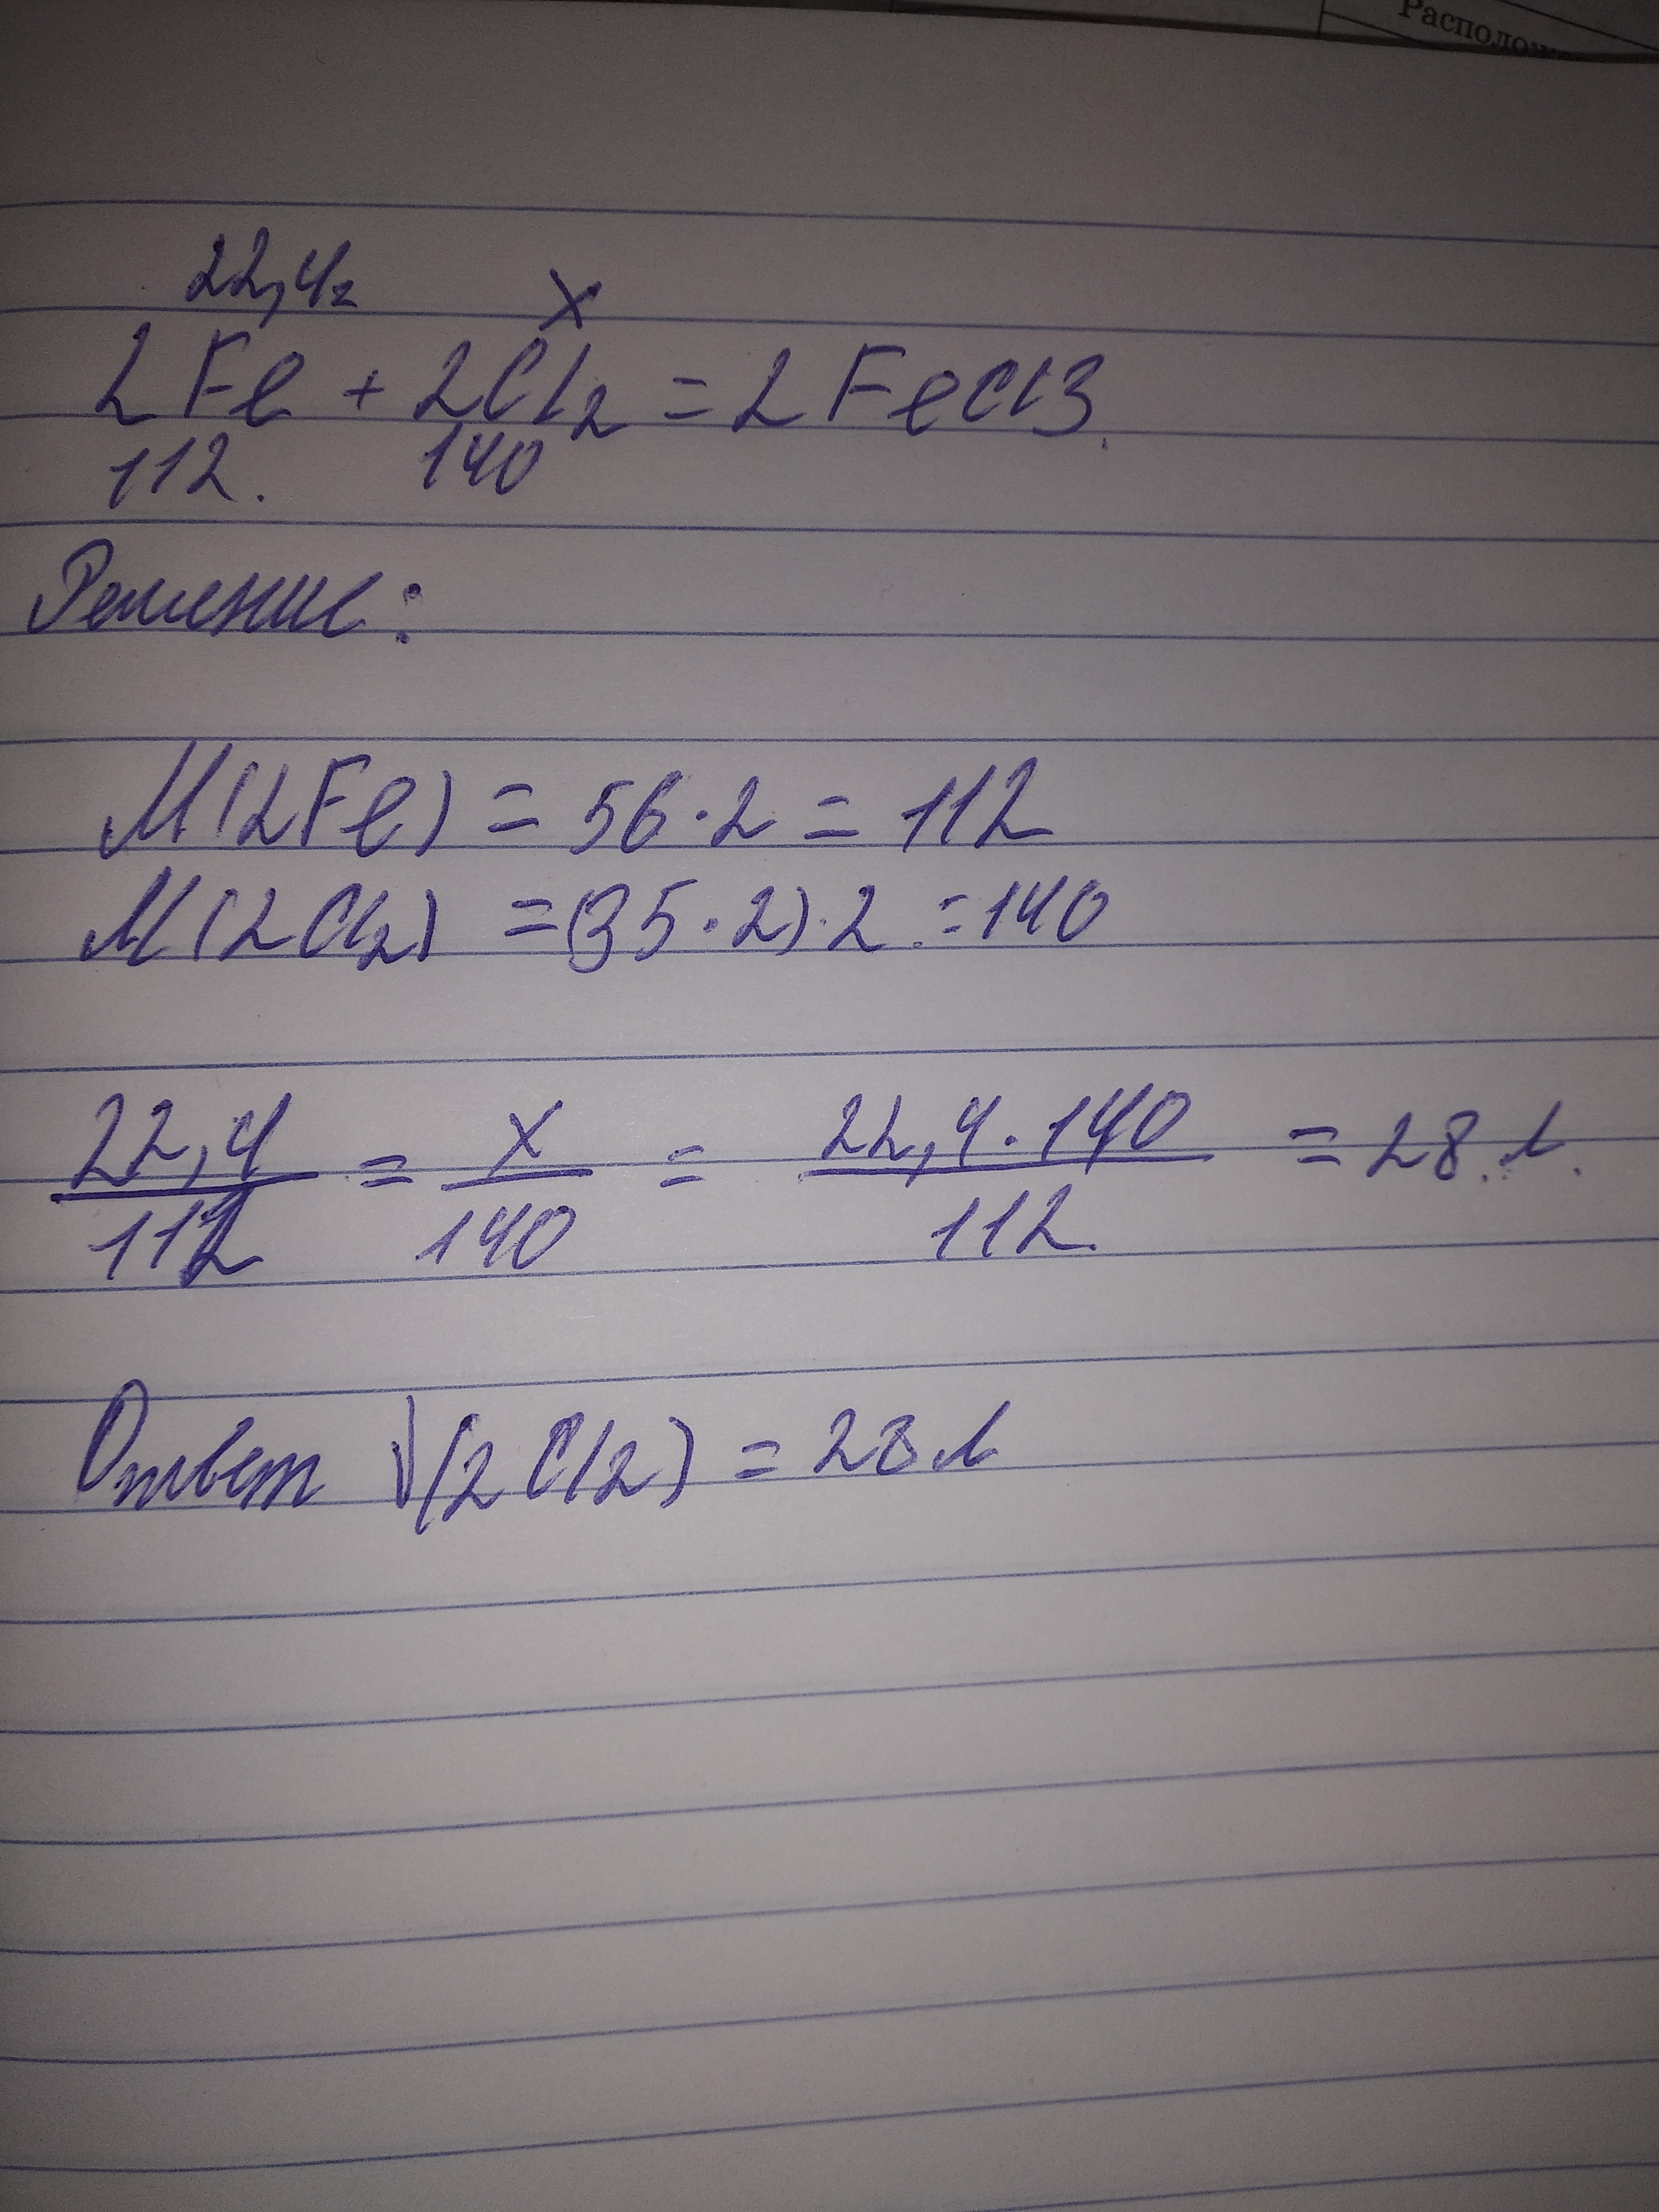 Располож
22,4г x
2Fe + 2Cl₂ = 2FeCl3.
112. 140
Решение:
M(2Fe) = 56·2 = 112
M(2Cl₂) =(35·2)·2 = 140
22,4/112 = x/140 = 22,4·140/112. = 28 л.
Ответ V(2Cl2) = 28л